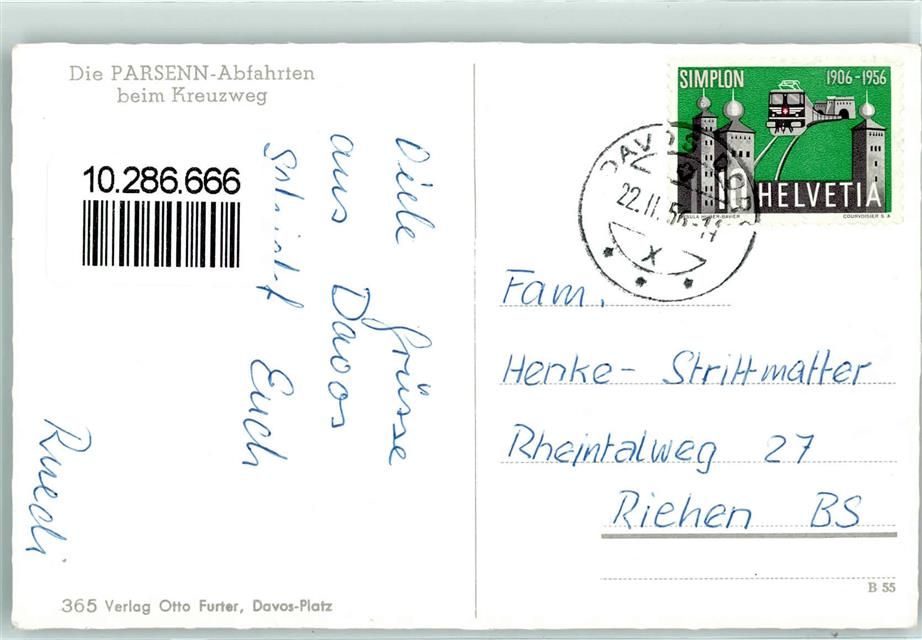 Die PARSENN-Abfahrten
beim Kreuzweg
10.286.666
Viele Grüsse
aus Davos
Euch
Ruedi
365 Verlag Otto Furter, Davos-Platz
SIMPLON 1906-1956
10 HELVETIA
COURVOISIER S.A.
DAVOS DORF
22.II.56-11
X
Fam.
Henke-Strittmatter
Rheintalweg 27
Riehen BS
B 55